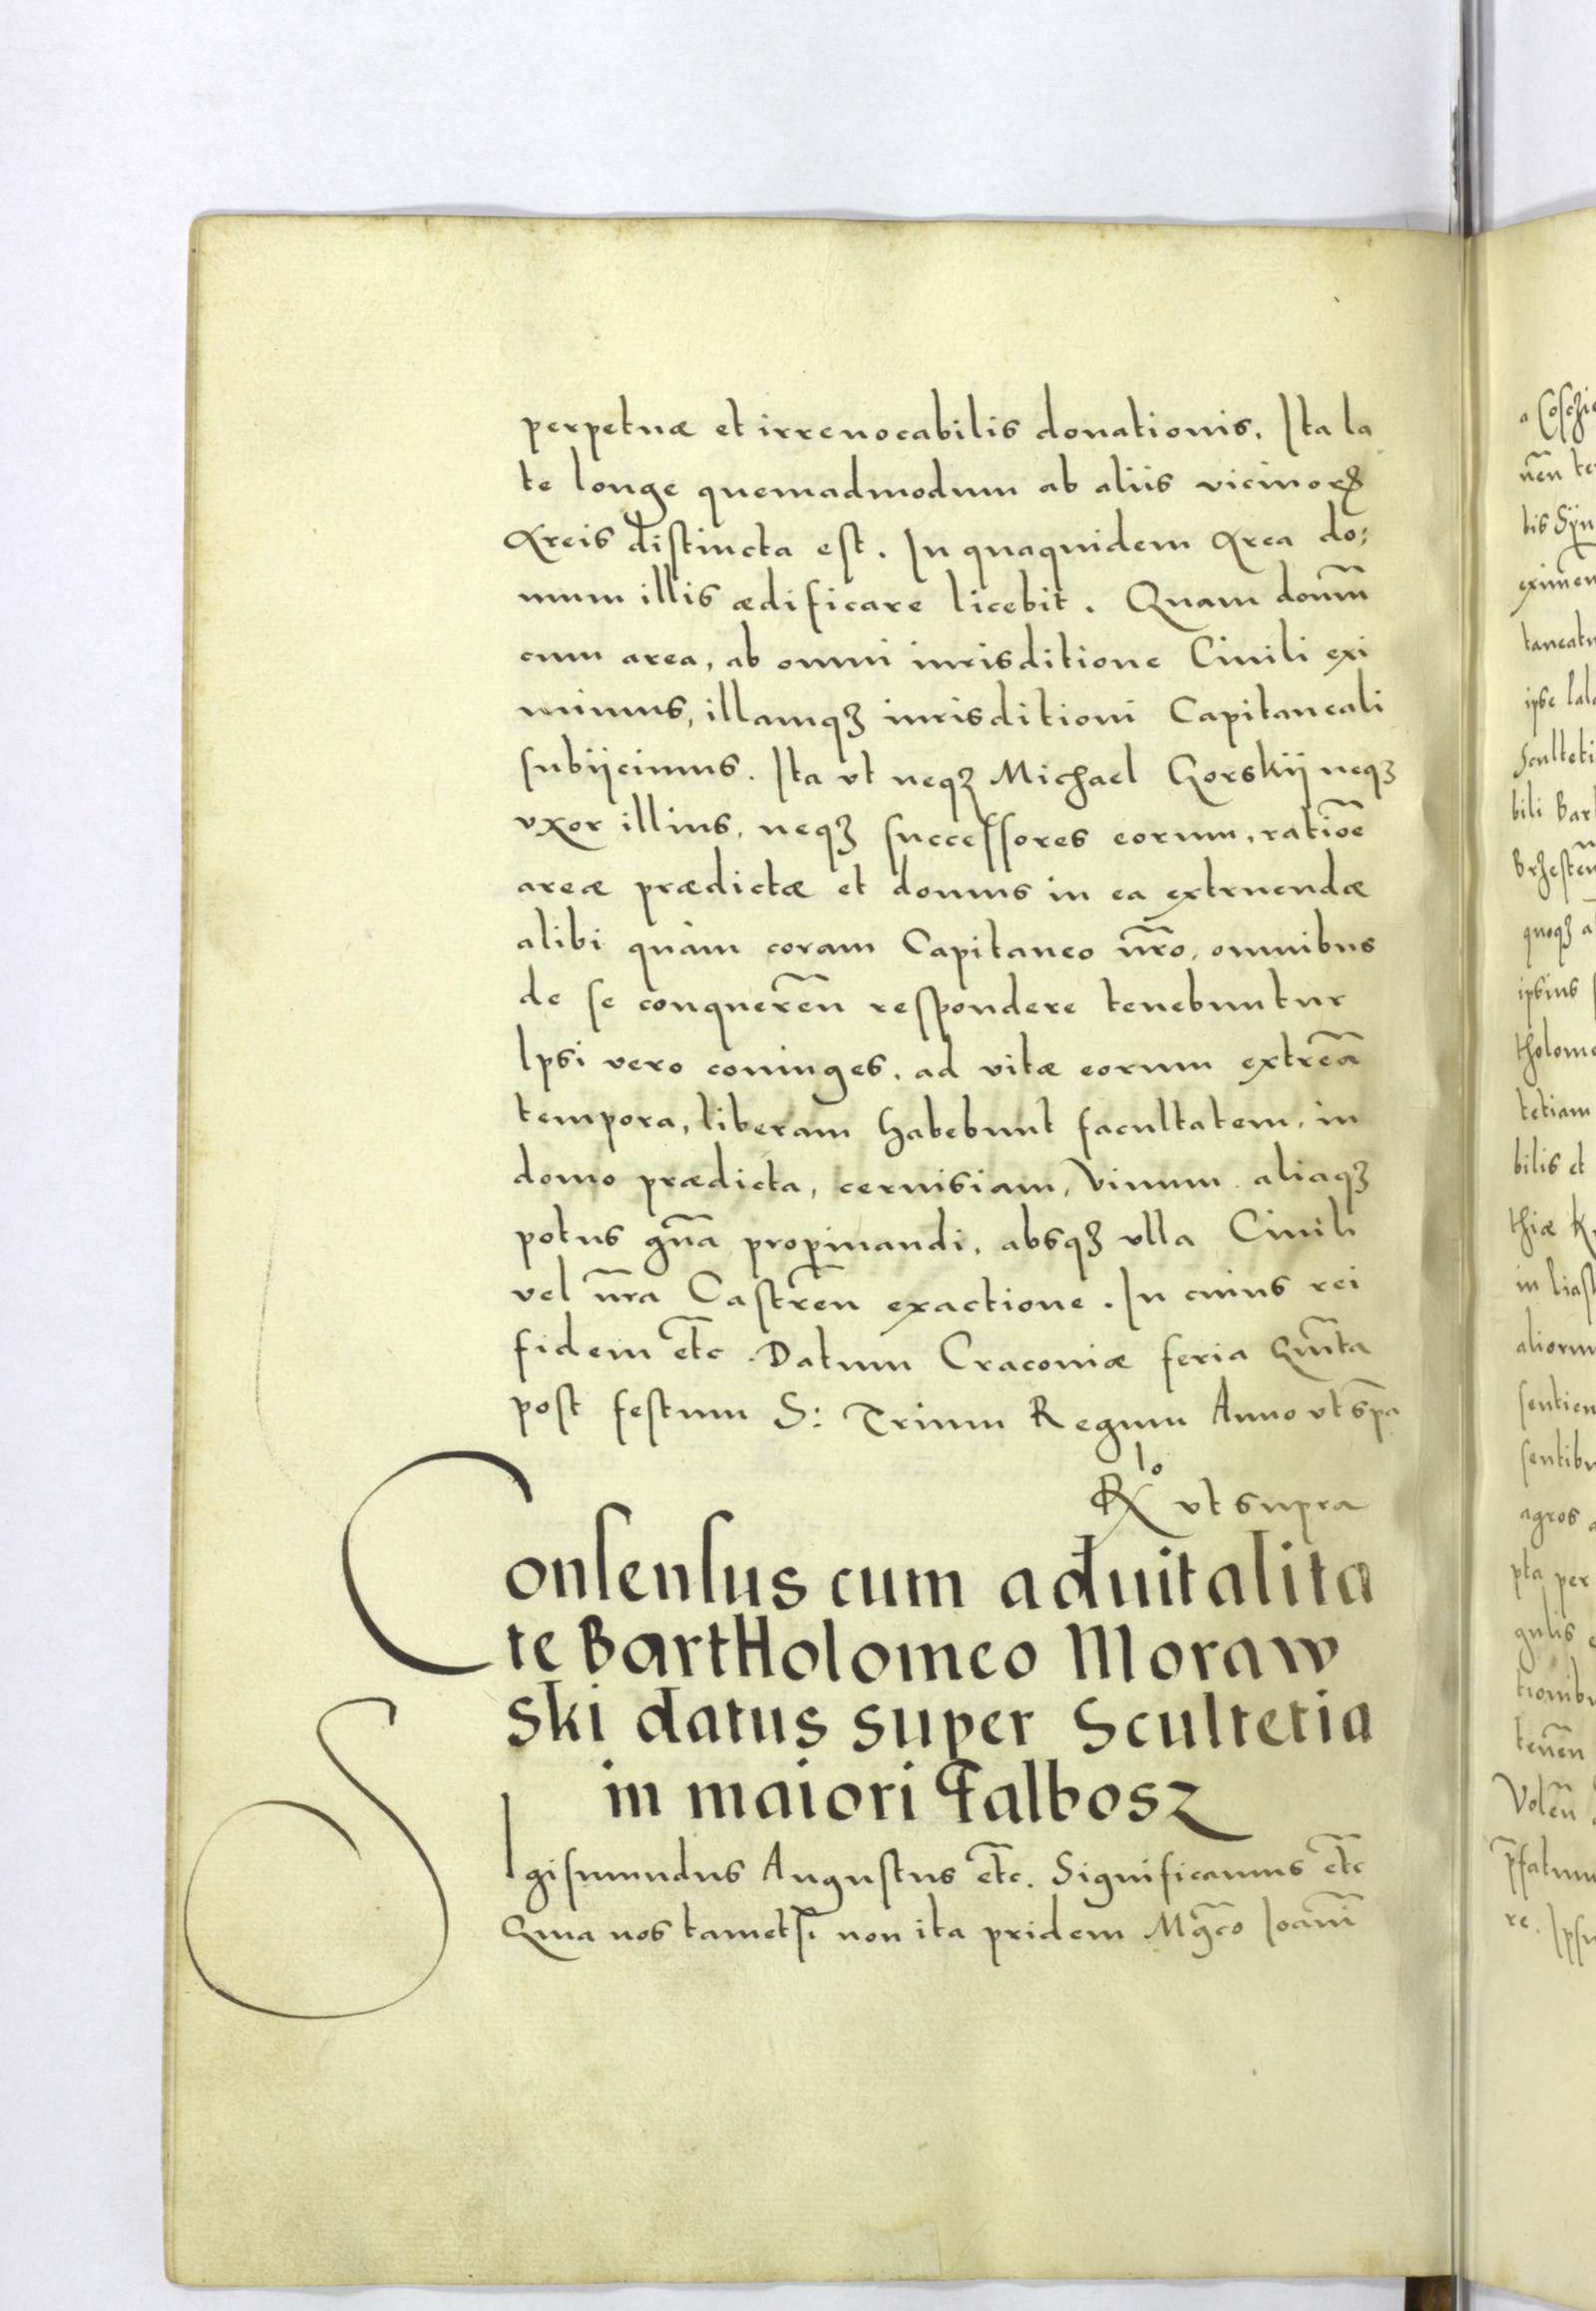 perpetuæ et irreuocabilis donationis. Ita la
te longe quemadmodum ab aliis vicinorꝝ
Areis distincta est. In quaquidem Area do:
mum illis ædificare licebit. Quam domū
cum area, ab omni iurisditione Ciuili exi
mimus, illamqꝫ iurisditioni Capitaneali
subijcimus. Ita vt neqꝫ Michael Gorskij neqꝫ
vxor illius, neqꝫ successores eorum, ratiōe
areæ prædictæ et domus in ea extruendæ
alibi quàm coram Capitaneo nr̄o, omnibus
de se conquerēn respondere tenebuntur
Ipsi vero coniuges, ad vitæ eorum extrēa
tempora, liberam habebunt facultatem, in
domo prædicta, ceruisiam, Vinum aliaqꝫ
potus gn̄a propinandi, absqꝫ vlla Ciuili
vel nr̄a Castrēn exactione. In cuius rei
fidem et̄c. Datum Cracouiæ feria Quīta
post festum S: Trium Regum Anno vt sp̄a
Rlo vt supra
Consensus cum aduitalita
te Bartholomeo Moraw
ski datus super Scultetia
in maiori Falbosz
Sigismundus Augustus et̄c. Significamus et̄c
Quia nos tametsi non ita pridem Mgc̄o Ioann̄i
a
nēn te
bis Syn
eximen
taneatu
ipse
Sculteti
bili Bar
Brzestēn
quoqꝫ a
ipsius
tholome
tetiam
bilis et
thiæ
in
aliorum
sentien
sentibu
agros
pta per
gulis
tionibu
tenēn
Volēn
p̄fatum
re. Ipsu